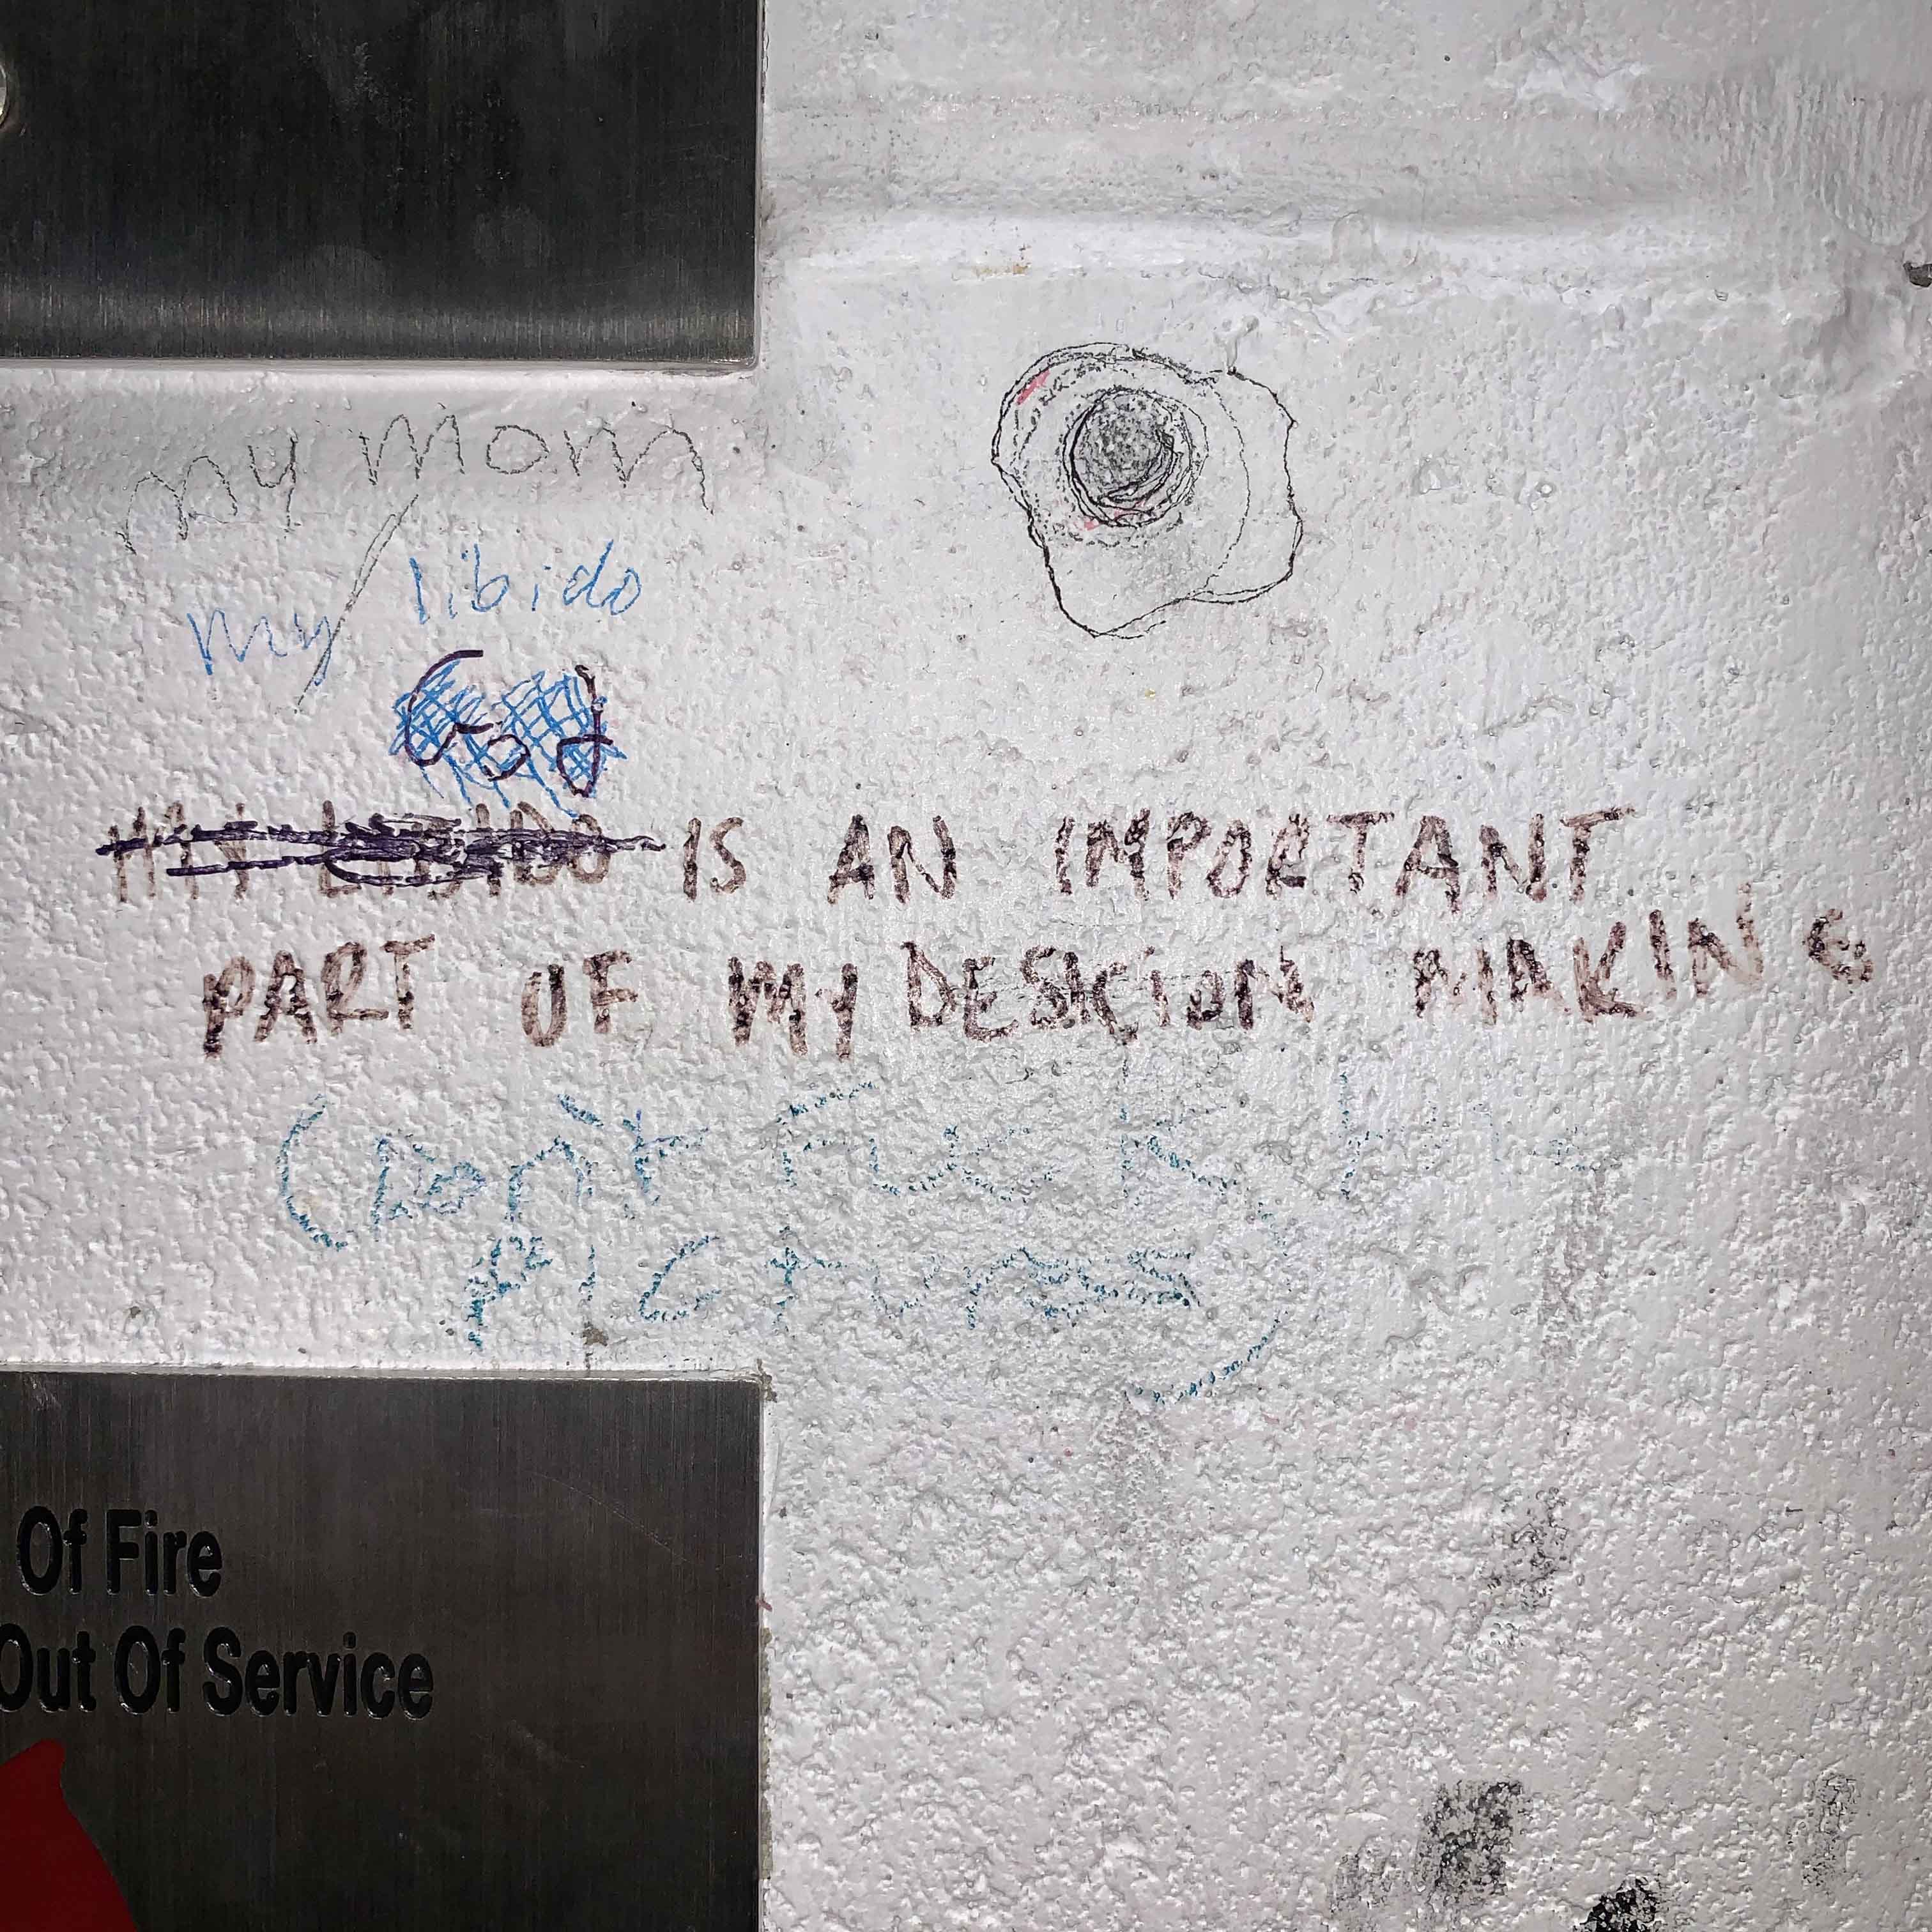 my mom
my libido
God
MY LIBIDO IS AN IMPORTANT
PART OF MY DESICION MAKING
(Don't fuck the
pictures)
Of Fire
Out Of Service